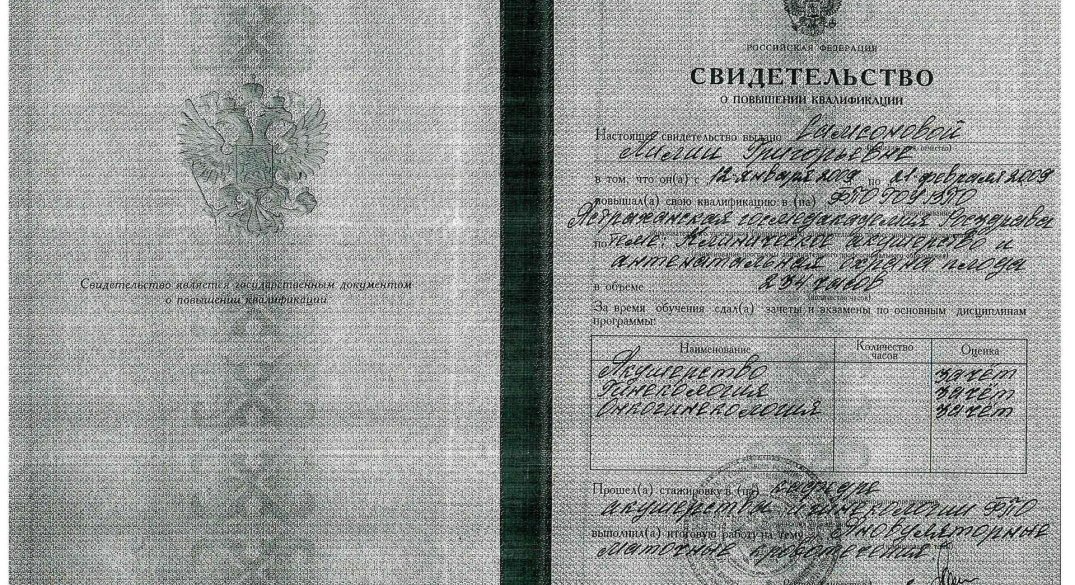 Свидетельство является государственным документом
о повышении квалификации
РОССИЙСКАЯ ФЕДЕРАЦИЯ
СВИДЕТЕЛЬСТВО
О ПОВЫШЕНИИ КВАЛИФИКАЦИИ
Настоящее свидетельство выдано Самсоновой
Лилии Григорьевне
в том, что он(а) с 12 января 2009 по 21 февраля 2009
повышал(а) свою квалификацию в (на) ФПО ГОУ ВПО
Астраханская госмедакадемия Росздрава
по теме: Клиническое акушерство и
антенатальная охрана плода
в объеме 234 часов
(количество часов)
За время обучения сдал(а) зачеты и экзамены по основным дисциплинам
программы:
Наименование Количество часов Оценка
Акушерство зачёт
Гинекология зачёт
Онкогинекология зачёт
Прошел(а) стажировку в (на) кафедре
акушерства и гинекологии ФПО
выполнил(а) итоговую работу на тему: Ановуляторные
маточные кровотечения